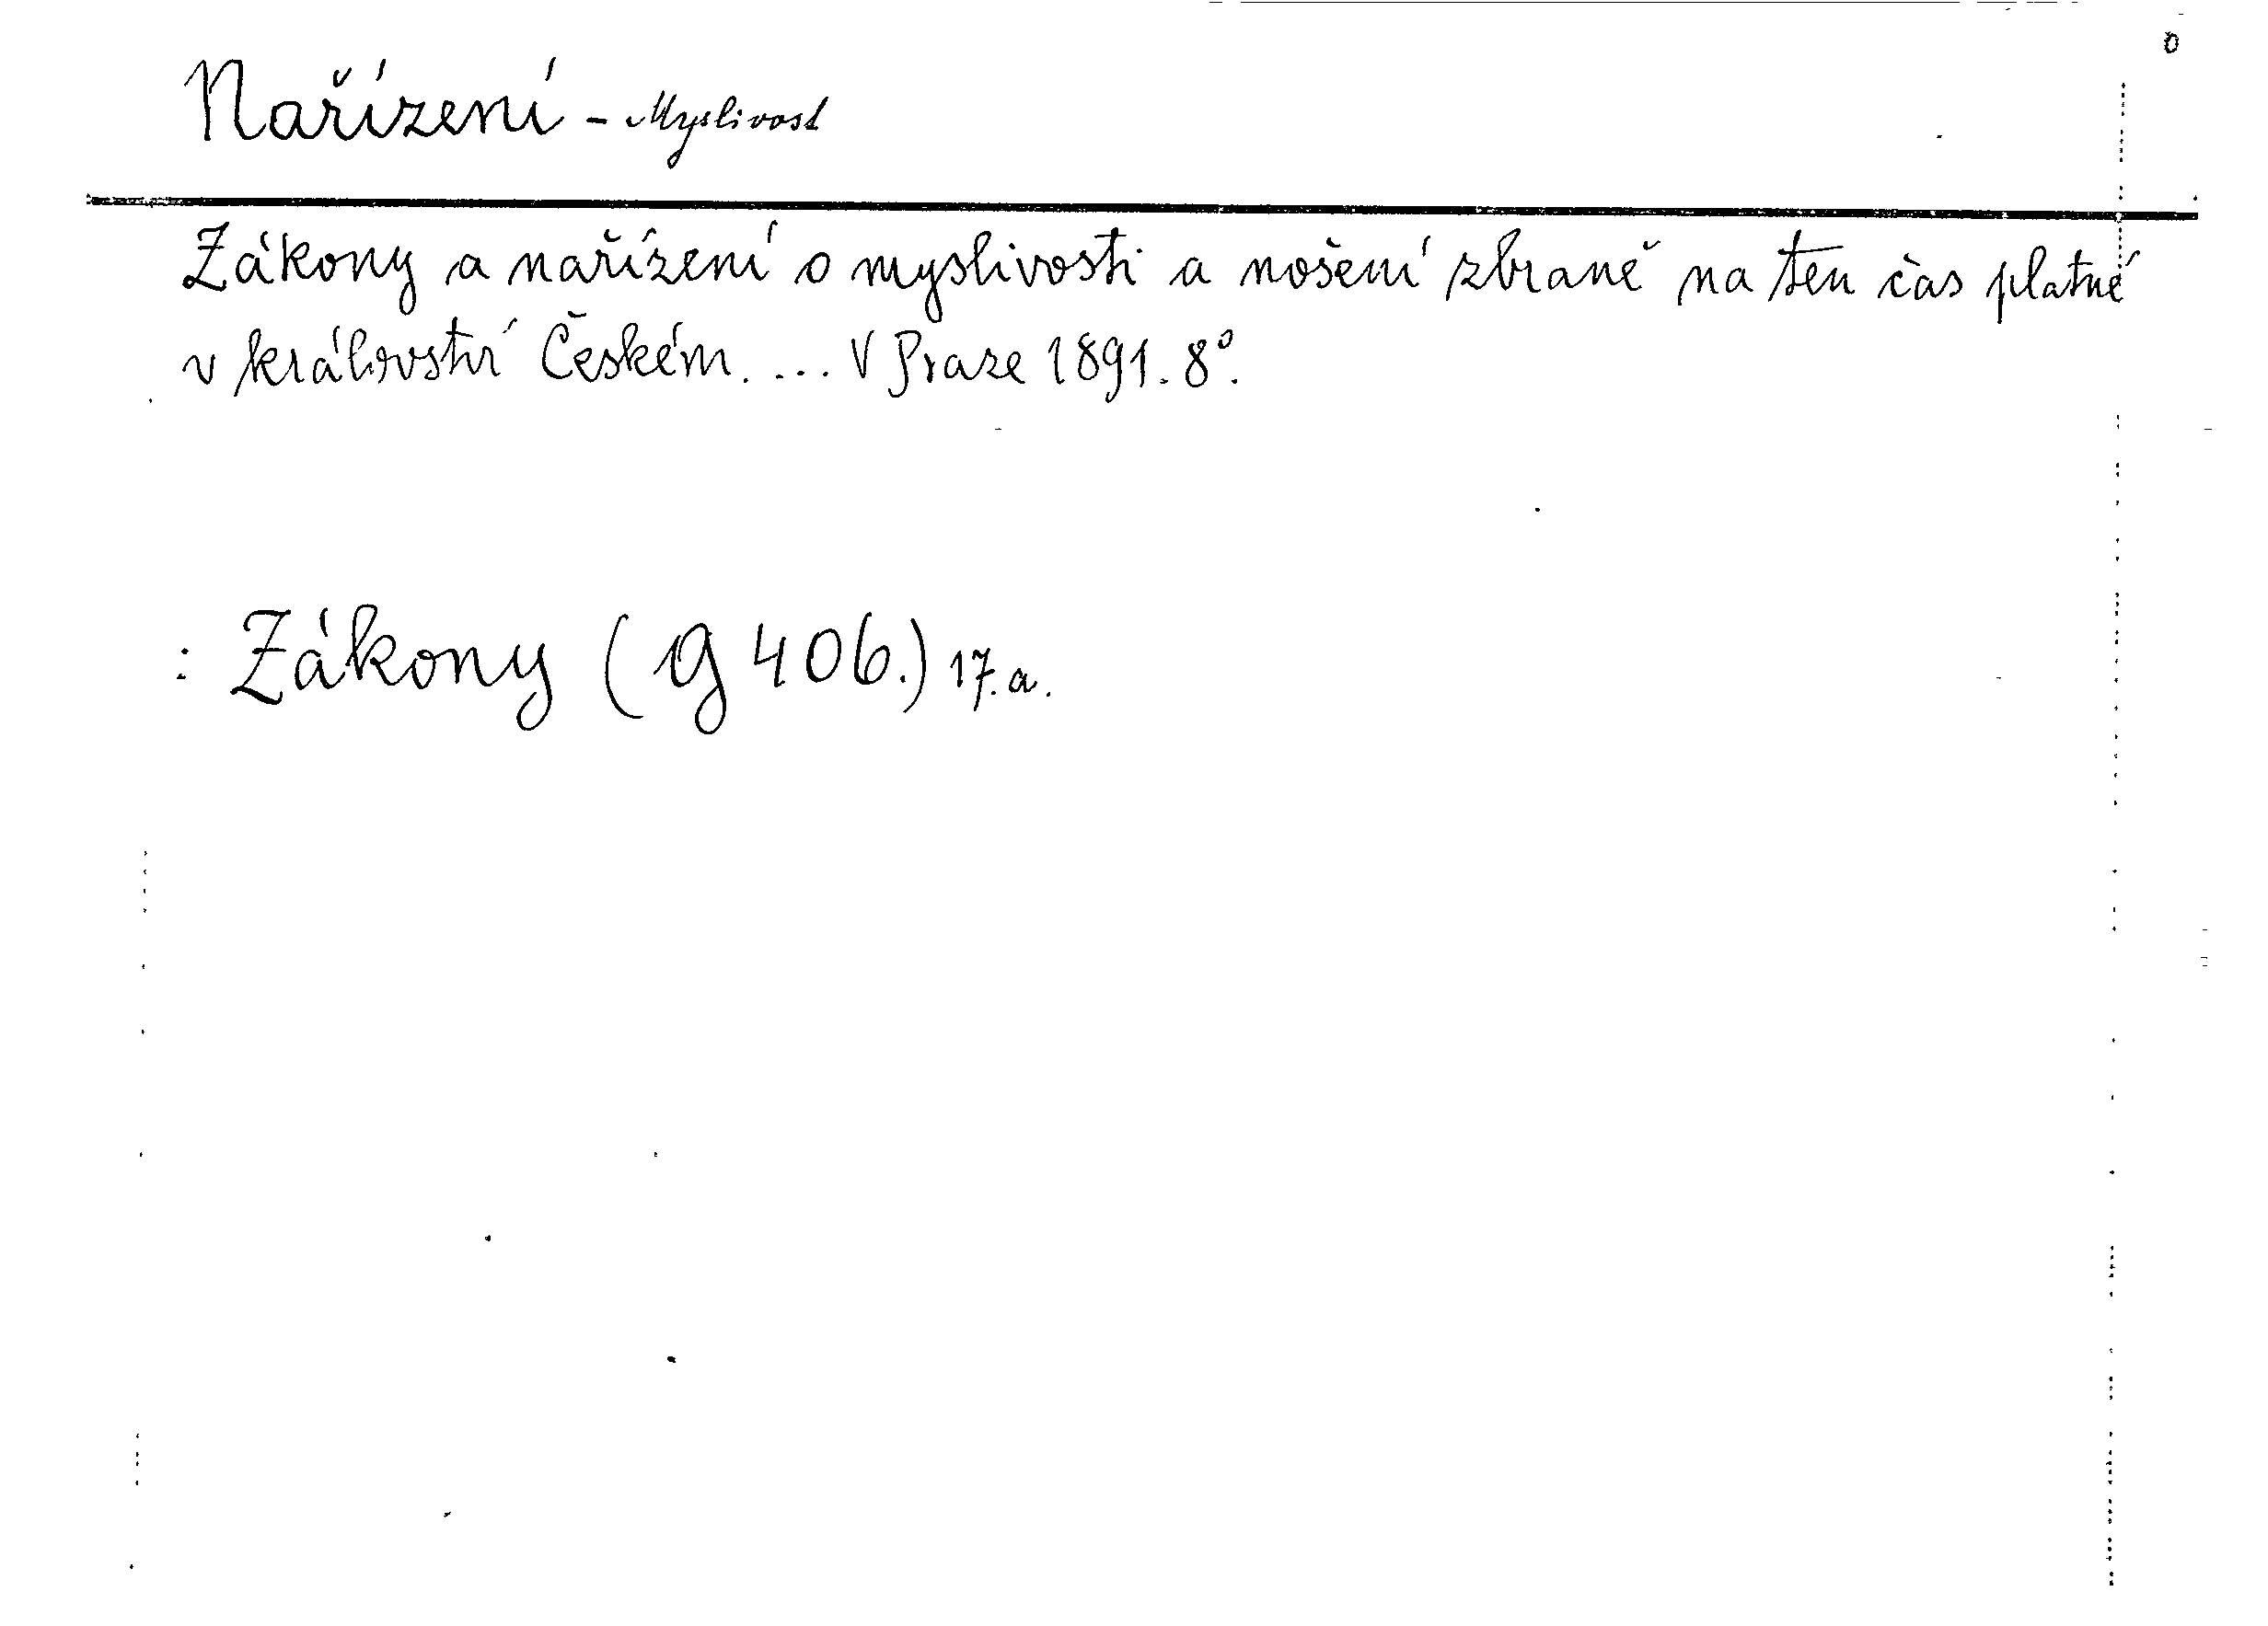 Nařízení - Myslivost
Zákony a nařízení o myslivosti a nošení zbraně na ten čas platné
v království Českém. ... V Praze 1891. 8°.
: Zákony (g 406.) 17.a.